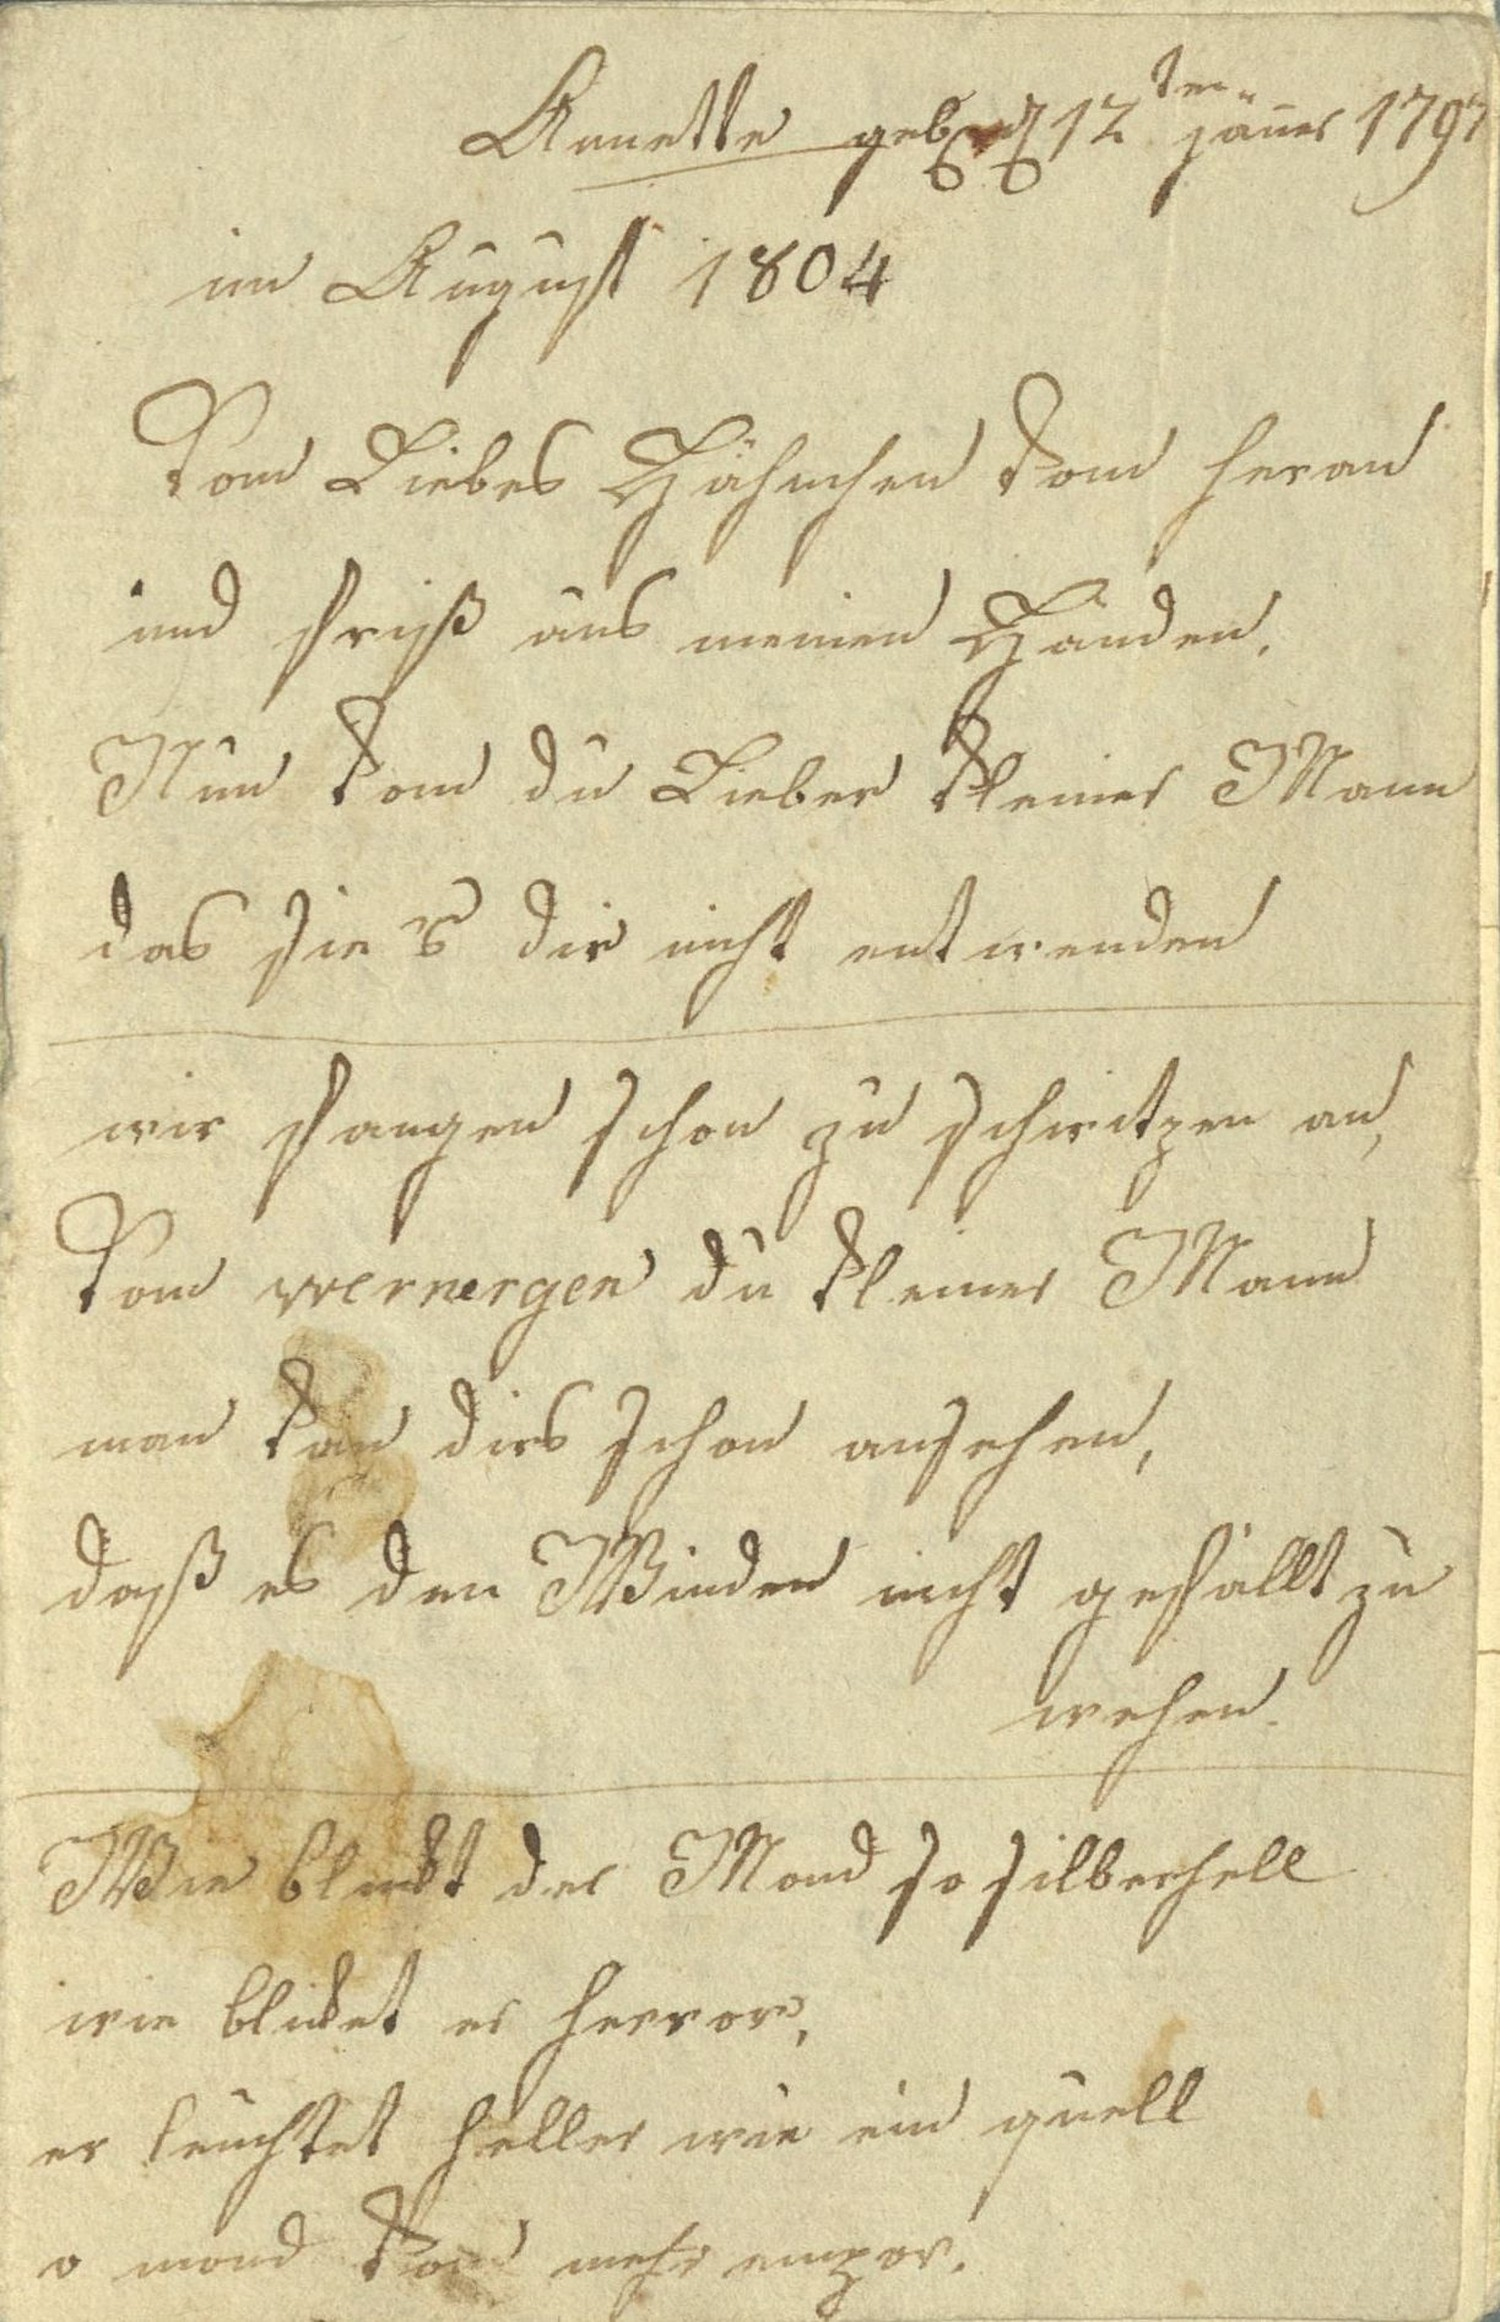 Annette geb d 12ten Jäner 1797
im August 1804
Kom Liebes Hähnchen kom heran
und friß aus meinen Händen.
Nun kom du Lieber kleiner Mann
das sie's dir nicht entwenden
wir fangen schon zu schwitzen an,
Kom wernergen du kleiner Mann
man kan dirs schon ansehen,
daß es den Winden nicht gefällt zu
wehen.
Wie blickt der Mond so silberhell
wie blicket er hervor,
er leuchtet heller wie ein quell
o mond kom mehr empor.